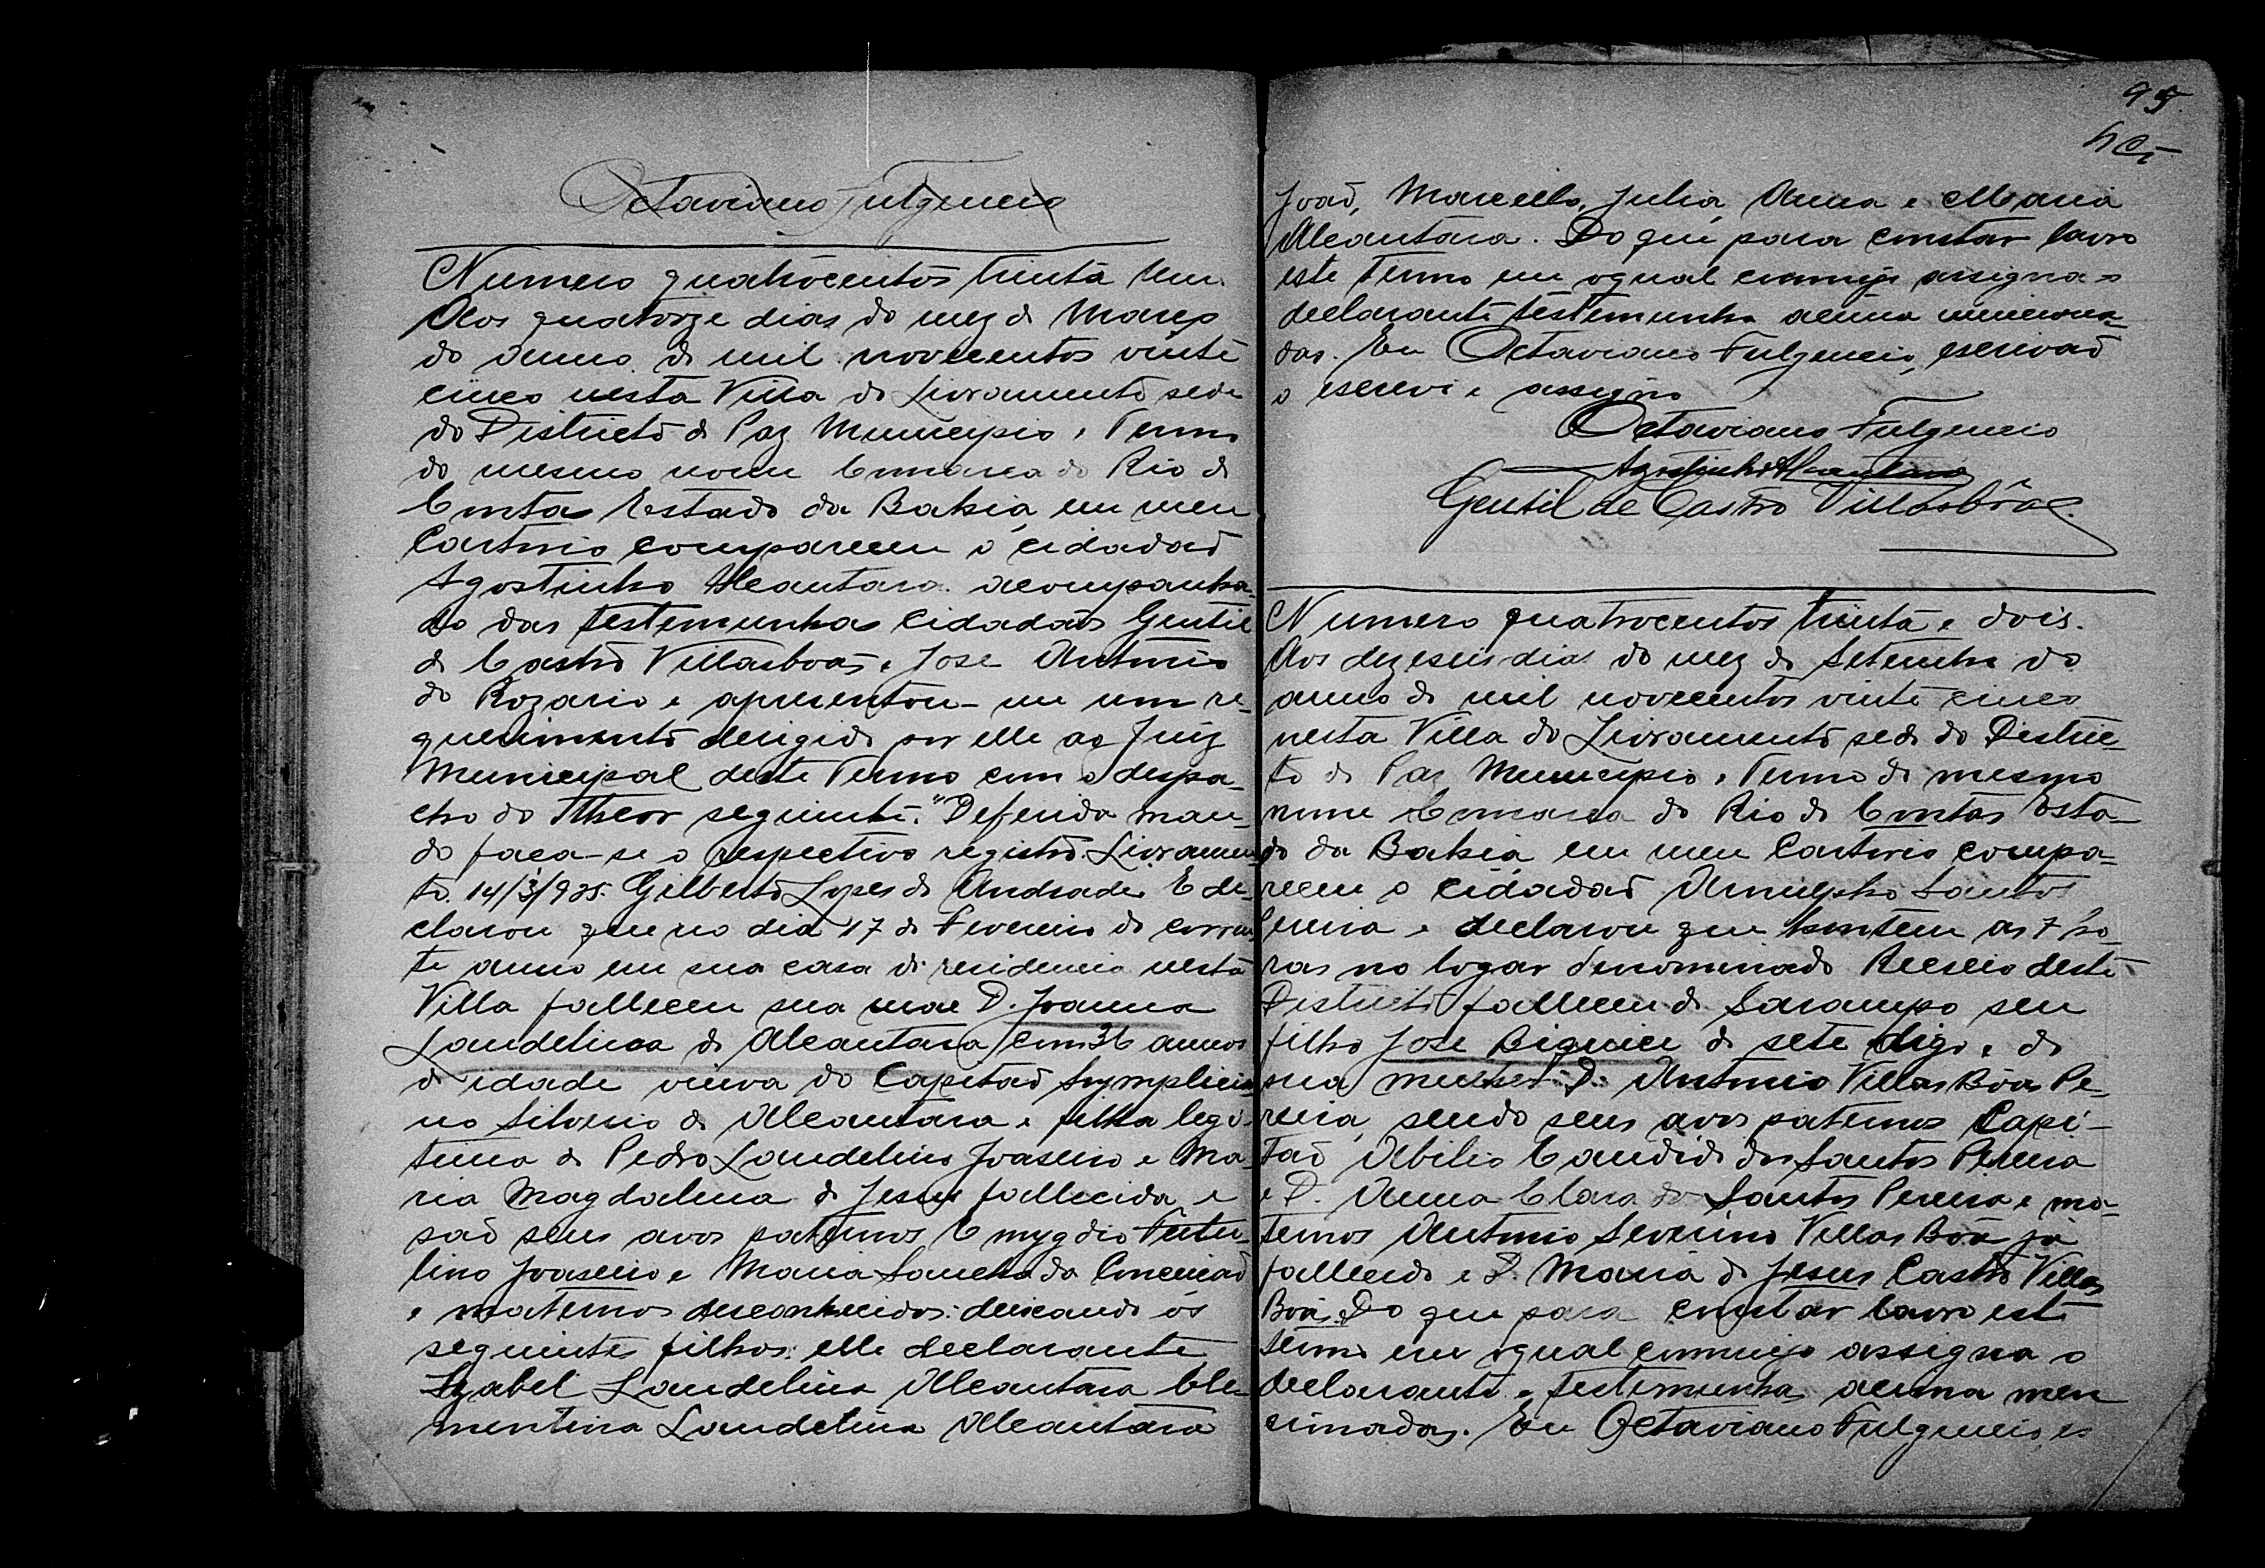 Octaviano Fulgencio
Numero quatrocentos trinta um.
Aos quatorze dias do mez de Março
do anno de mil novecentos vinte
cinco nesta Villa do Livramento sede
do Districto de Paz Municipio e Termo
do mesmo nome Comarca do Rio de
Contas Estado da Bahia, em meu
Cartorio compareceu o cidadaõ
Agostinho Alcantara acompanha-
do das testemunhas cidadaõs Gentil
de Castro Villasboas e José Antonio
do Rozario e apresentou-me um re-
querimento derigido por elle ao Juiz
Municipal deste Termo com o despa-
cho do Theor seguinte: "Deferida man-
do faça-se o respectivo registro. Livramen-
to. 14/3/925. Gilberto Lopes de Andrade. E de-
clarou que no dia 17 de Fevereiro do corren
te anno em sua casa de residencia nesta
Villa falleceu sua mae D. Joanna
Laudelina de Alcantara com 36 annos
de idade viuva do Capitaõ Symplicia
no Silverio de Alcantara e filha legi-
tima de Pedro Laudelino Joaseiro e Ma-
ria Magdalena de Jesus fallecida e
saõ seus avos paternos Emygdio
lino Joaseiro e Maria da Conceicaõ
e maternos desconhecidos: deixando os
seguintes filhos: elle declarante
Izabel Laudelina Alcantara Cle-
mentina Laudelina Alcantara
95
João, Marcello, Julia, Anna e Maria
Alcantara. Do que para constar lavro
este Termo em o qual commigo assigna o
declarante testemunha acima menciona-
das. Eu Octaviano Fulgencio, escrivaõ
o escrevi e assigno
Octaviano Fulgencio
Agostinho Alcantara
Gentil de Castro Villasbôas.
Numero quatrocentos trinta e dois.
Aos dezeseis dias do mez de Setembro do
anno de mil novecentos vinte cinco
nesta Villa do Livramento sede do Distric-
to de Paz Municipio e Termo do mesmo
nome Comarca do Rio de Contas Esta-
do da Bahia em meu Cartorio compa-
receu o cidadaõ Arnulpho Santos
Pereira e declarou que hontem as 7 ho-
ras no logar denominado Recreio deste
Districto falleceu de Sarampo seu
filho José de sete digo e de
sua mulher D. Antonia Villas Bôas Pe-
reira, sendo seus avos paternos Capi-
taõ Abilio Candido dos Santos Pereira
e D. Anna Clara dos Santos Pereira e ma-
ternos Antonio Severino Villas Bôas já
fallecido e D. Maria de Jesus Castro Villas
Bôas. Do que para constar lavro este
termo em o qual commigo assigna o
declarante e testemunhas acima men
cionadas. Eu Octaviano Fulgencio, es